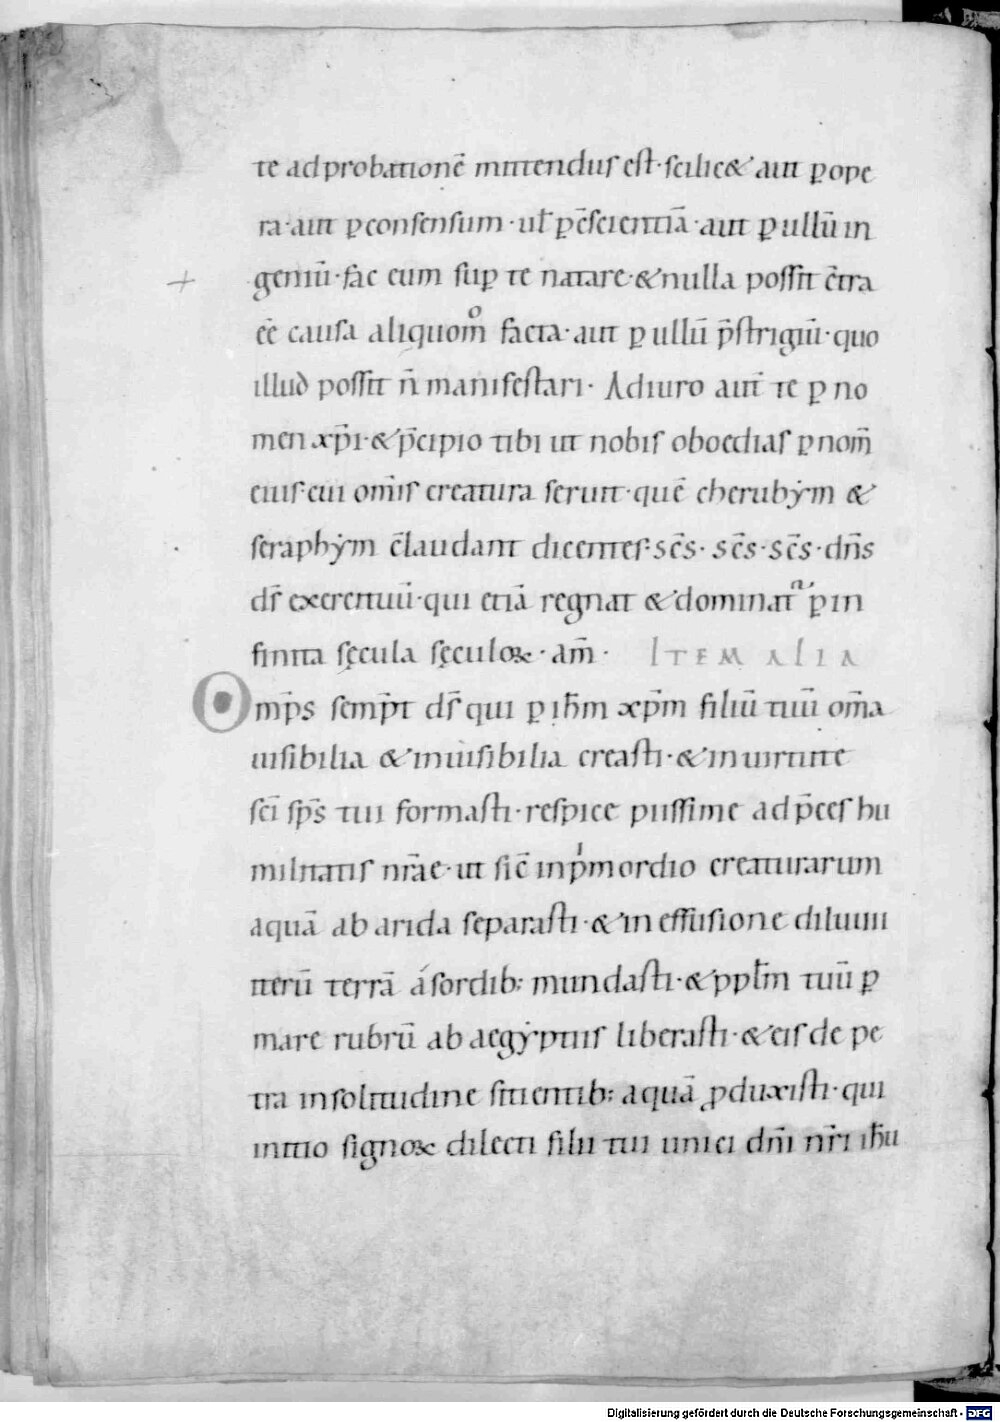 te ad probationē mittendus est · scilic& aut ꝑ ope
ra · aut ꝑ consensum · uł ꝑ cs̄cientiā · aut ꝑ ullū in
geniū · fac eum suꝑ te natare · & nulla possit c̄tra
ēē causa aliquom̊ facta · aut ꝑ ullū p̄strigiū · quo
illud possit n̄ manifestari · Adiuro aut̄ te ꝑ no
men xp̄i · & p̄cipio tibi ut nobis oboedias ꝑ nom̄
eius · cui om̄is creatura seruit · quē cherubẏm &
seraphẏm c̄laudant dicentes · sc̄s · sc̄s · sc̄s · dn̄s
ds̄ exercituū · qui etiā regnat & dominat᷑ ꝑ in
finita sęcula sęculoꝝ · am̄ · ITEM ALIA
Omp̄s semp̄t ds̄ qui ꝑ ih̄m xp̄m filiū tuū om̄a
uisibilia & inuisibilia creasti · & in uirtute
sc̄i sp̄s tui formasti · respice piissime ad p̄ces hu
militatis nr̄ae · ut sic̄ in pⁱmordio creaturarum
aquā ab arida separasti · & in effusione diluuii
iterū terrā á sordib; mundasti · & ppłm tuū ꝑ
mare rubrū ab aegẏptiis liberasti · & eis de pe
tra in solitudine sitientib; aquā ꝓduxisti · qui
initio signoꝝ dilecti filii tui unici dn̄i nr̄i ih̄u
Digitalisierung gefördert durch die Deutsche Forschungsgemeinschaft - DFG